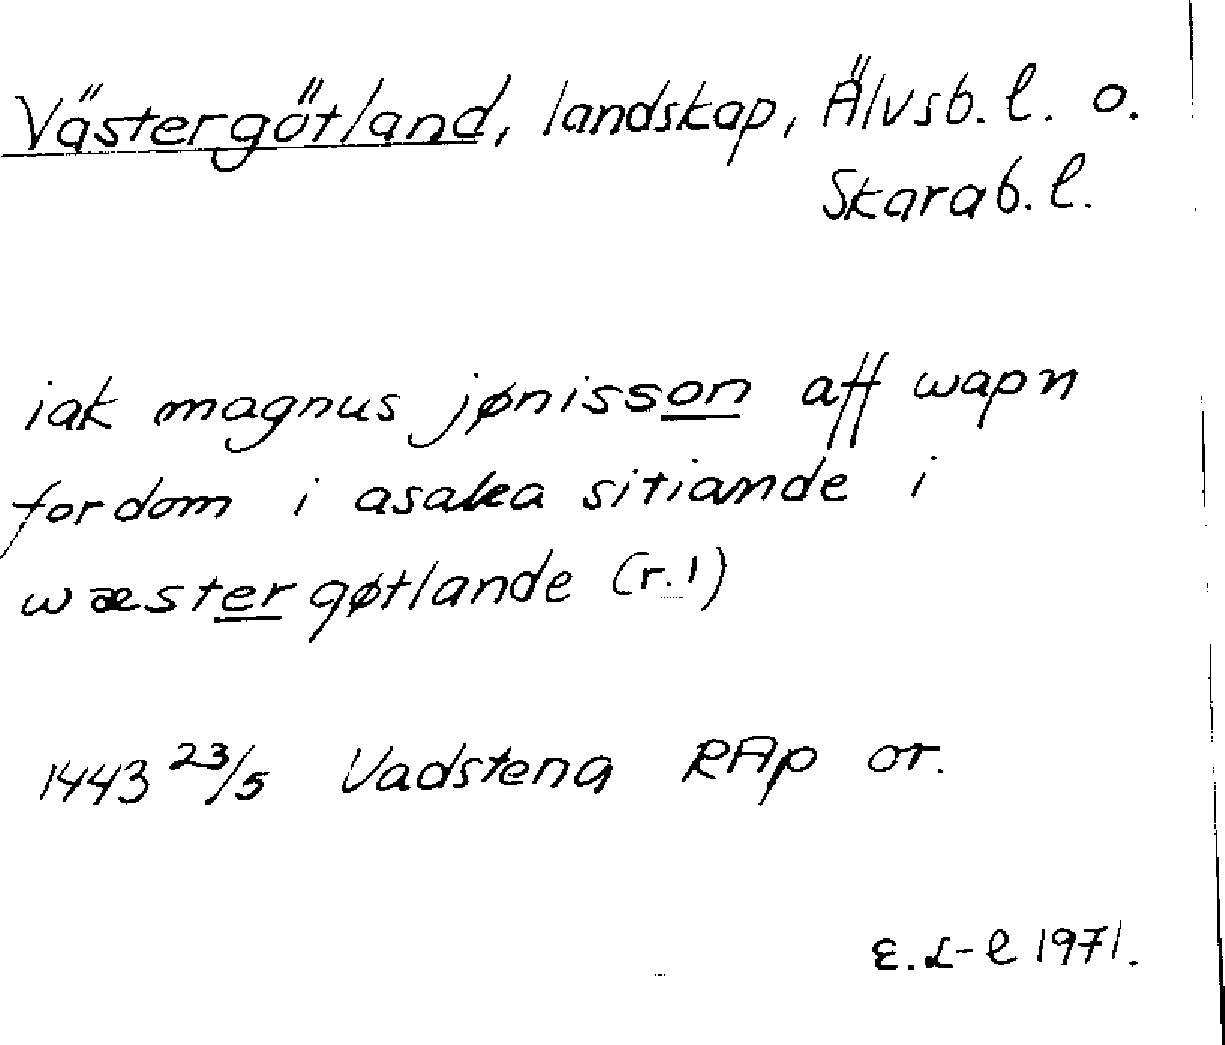 Västergötland, landskap, Älvsb. l. o.
Skarab. l.
iak magnus jønisson aff wapn
fordom i asaka sitiande i
wæstergøtlande (r. 1)
1443 23/5 Vadstena RAp or.
E. L-l 1971.